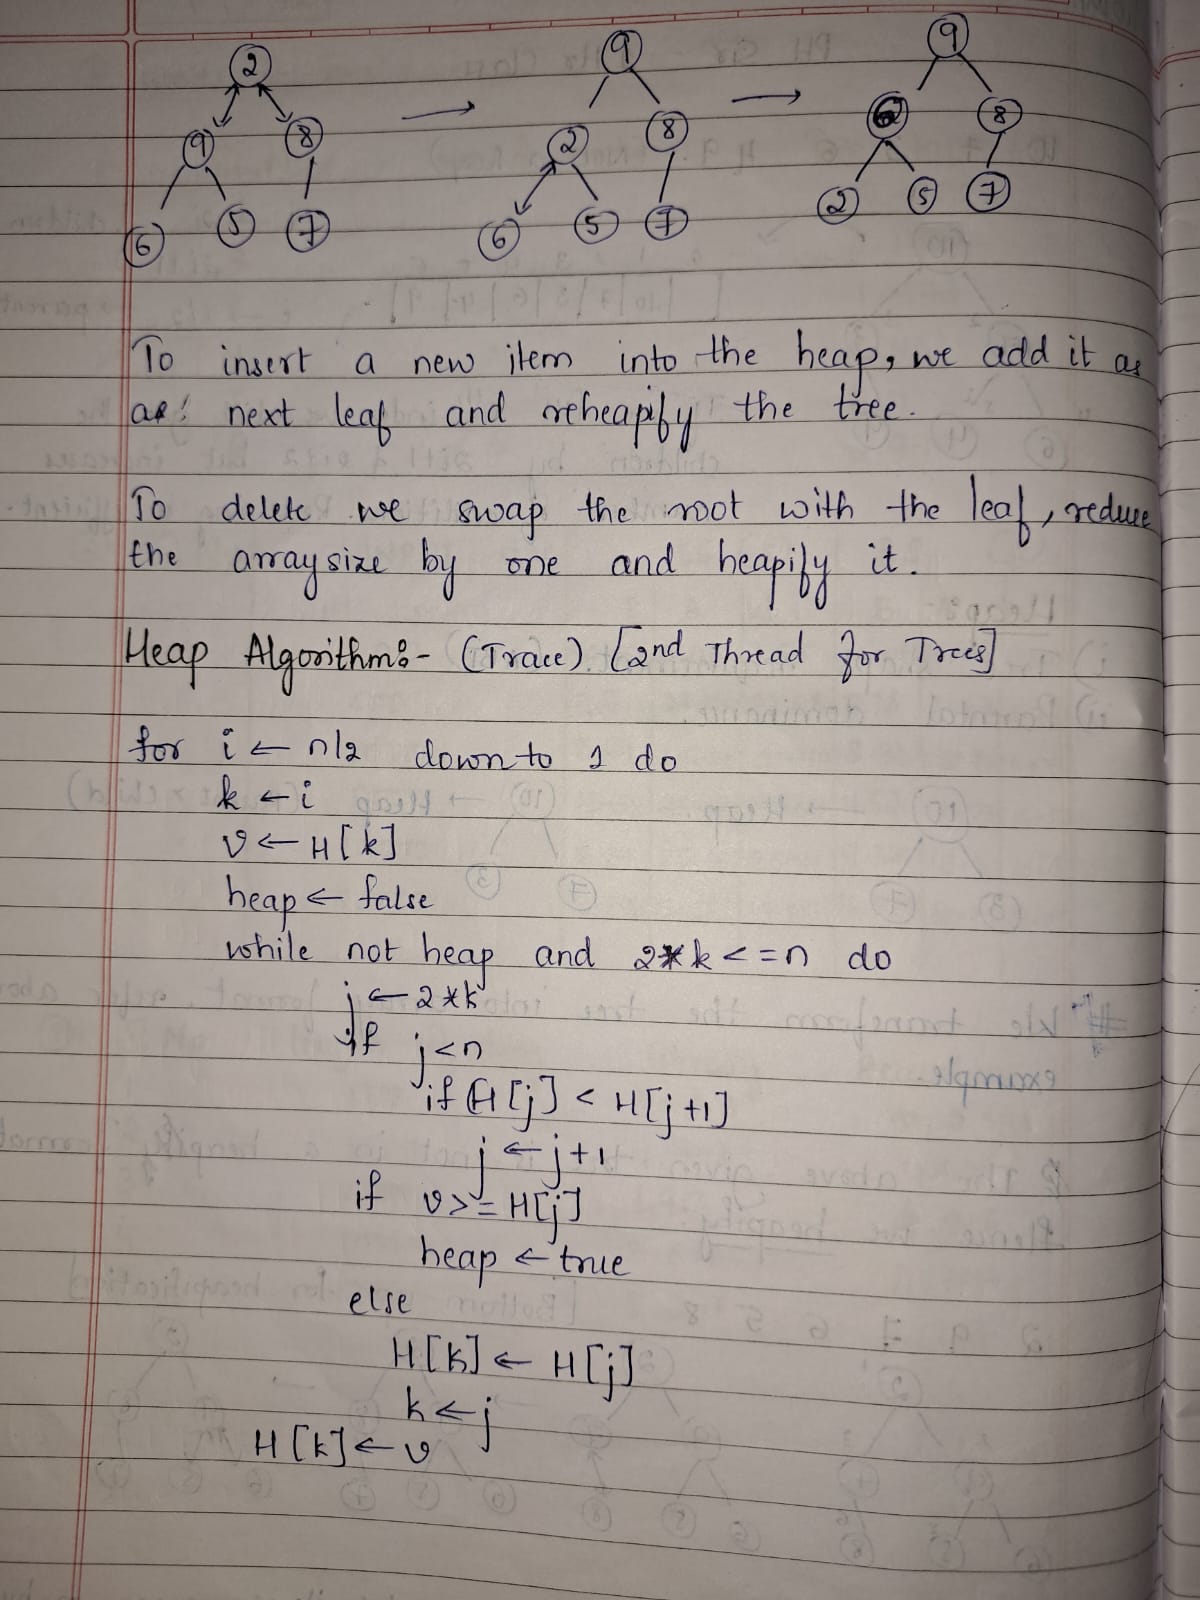 2 9 9
9 8 2 8 6 8
6 5 7 6 5 7 2 5 7
To insert a new item into the heap, we add it as
next leaf and reheapify the tree.
To delete we swap the root with the leaf, reduce
the array size by one and heapify it.
Heap Algorithm:- (Trace). [2nd Thread for Trees]
for i ← n/2 down to 1 do
k ← i
v ← H[k]
heap ← false
while not heap and 2*k <= n do
j ← 2*k
if j<n
if H[j] < H[j+1]
j ← j+1
if v>= H[j]
heap ← true
else
H[k] ← H[j]
k ← j
H[k] ← v